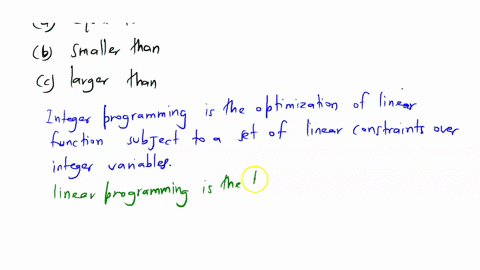 (b) smaller than
(c) larger than
Integer programming is the optimization of linear
function subject to a set of linear constraints over
integer variables.
linear programming is the